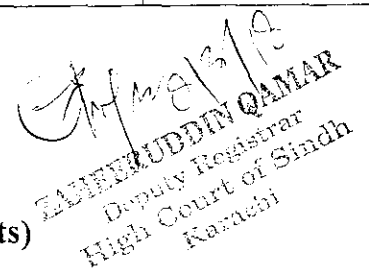 ZAHEERUDDIN QAMAR
Deputy Registrar
High Court of Sindh
Karachi
ts)